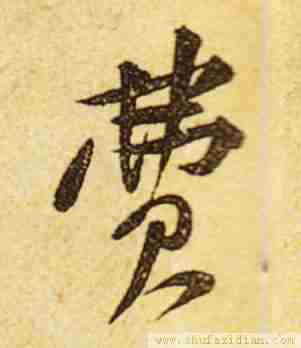 费
www.shufazidian.com